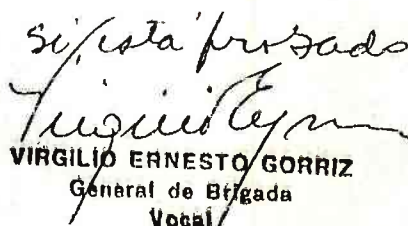 sí, está probado
VIRGILIO ERNESTO GORRIZ
General de Brigada
Vocal